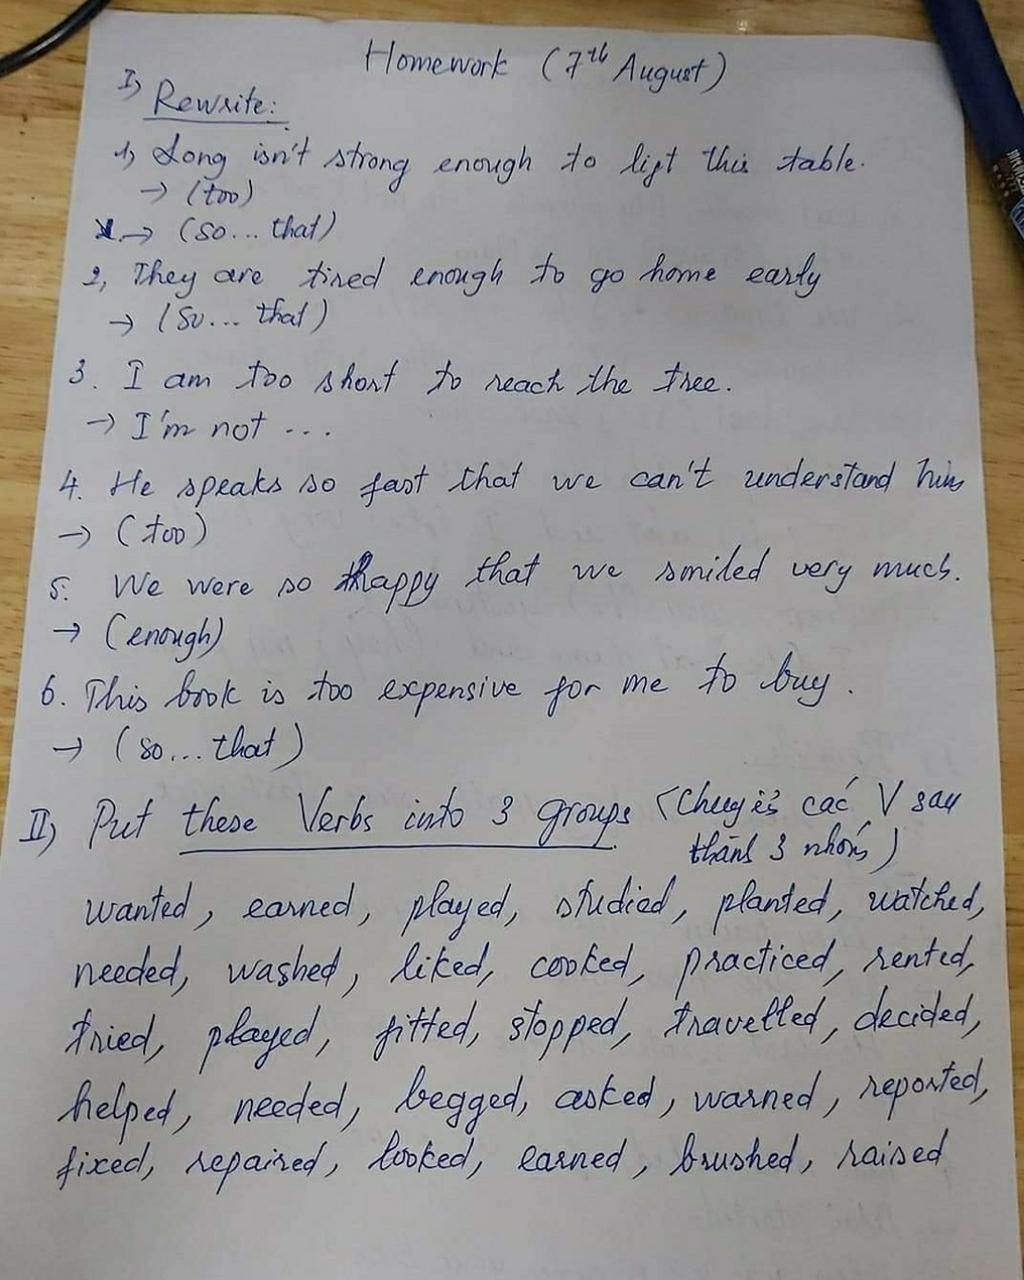 Homework (7th August)
I) Rewrite:
1) Long isn't strong enough to lift this table.
→ (too)
→ (so... that)
2, They are tired enough to go home early
→ (so... that)
3. I am too short to reach the tree.
→ I'm not ...
4. He speaks so fast that we can't understand him
→ (too)
5. We were so happy that we smiled very much.
→ (enough)
6. This book is too expensive for me to buy.
→ (so...that)
II) Put these Verbs into 3 groups (Chuyển các V sau
thành 3 nhóm)
wanted, earned, played, studied, planted, watched,
needed, washed, liked, cooked, practiced, rented,
tried, played, fitted, stopped, travelled, decided,
helped, needed, begged, asked, warned, reported,
fixed, repaired, looked, earned, brushed, raised